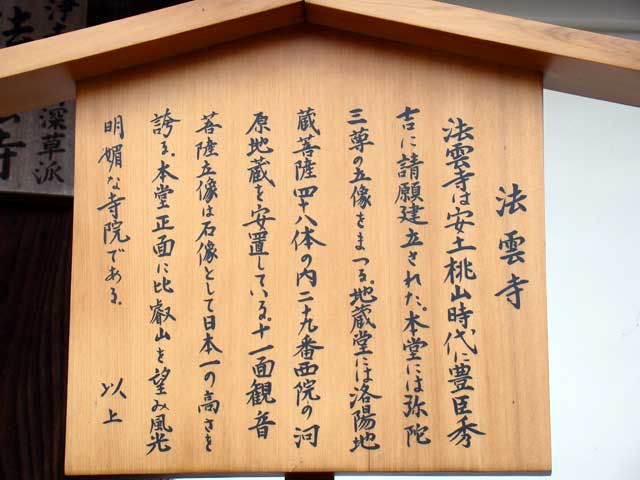 法雲寺
法雲寺は安土桃山時代に豊臣秀
吉に請願建立された。本堂には弥陀
三尊の立像をまつる。地蔵堂には洛陽地
蔵菩薩四十八体の内二十九番西院の河
原地蔵を安置している。十一面観音
菩薩立像は石像として日本一の高さを
誇る。本堂正面に比叡山を望み風光
明媚な寺院である。
以上
浄
深草派
法
寺